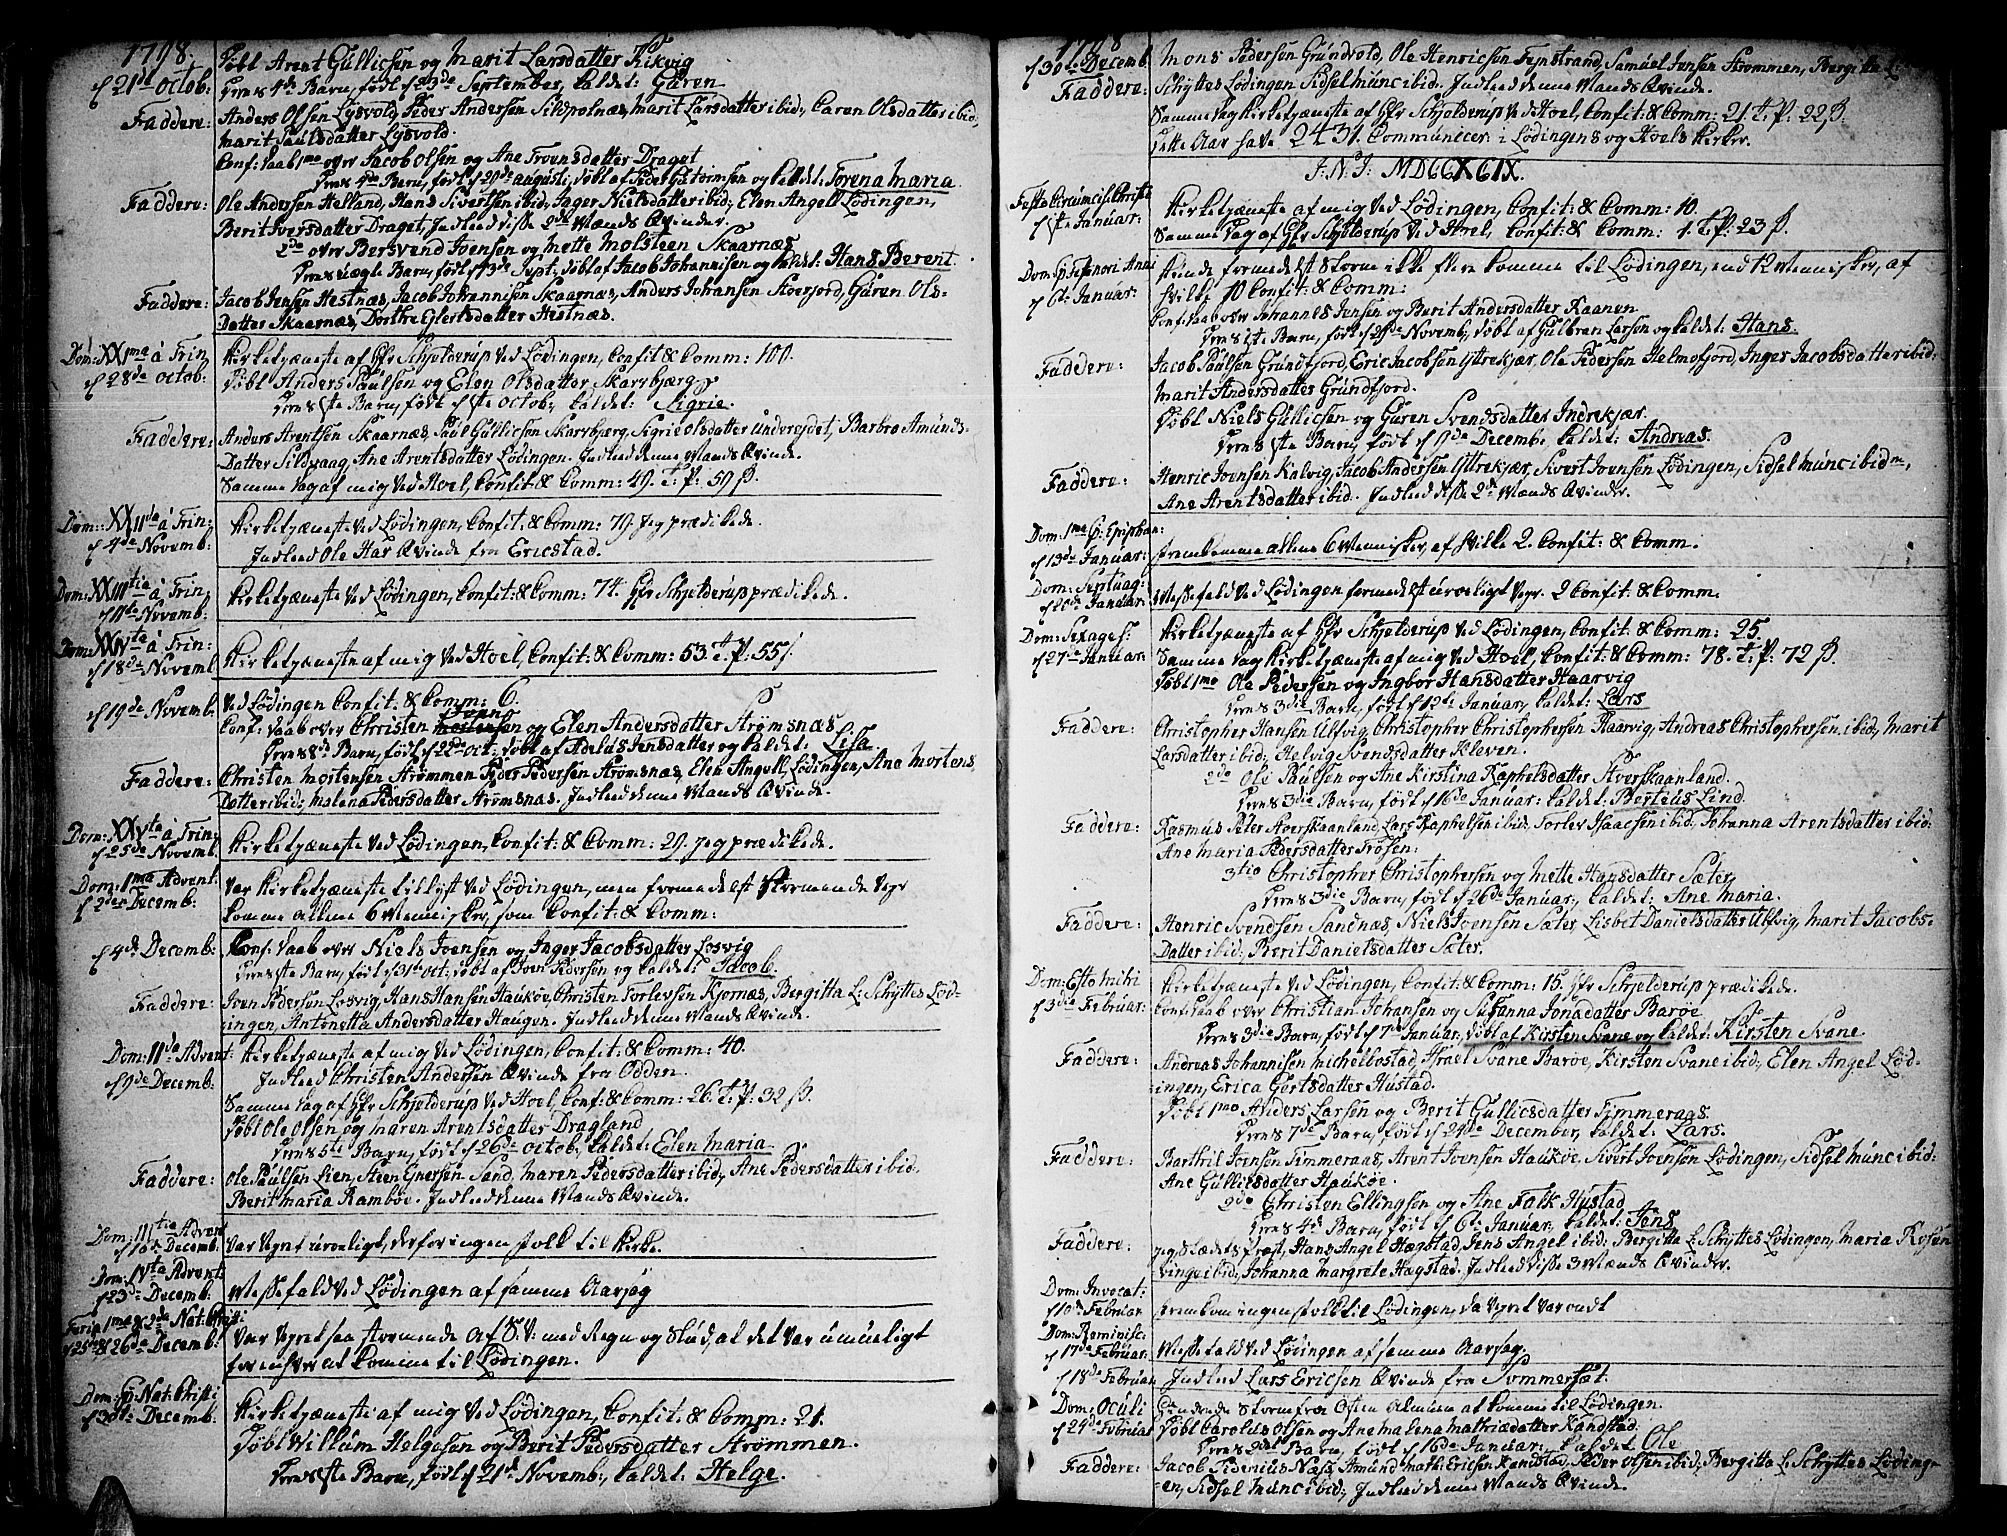 1798.
d 21de Octob:
Døbt Arent Gullicsen og Marit Larsdatter Kikvig
Deres 4de Barn, født d 23de September, kaldet: Guren
Faddere:
Anders Olsen Lysvold, Peder Andersen Sildpolnæs, Marit Larsdatter ibid:, Caren Olsdatter ibid:,
Marit Paulsdatter Lysvold.
Conf: Daab 1mo over Jacob Olsen og Ane Troensdatter Draget
Deres 4de Barn, født d 20de Augusti, døbt af Peder Guttormsen og kaldet: Torena Maria.
Faddere:
Ole Andersen Helland, Hans Sivertsen ibid:, Inger Nielsdatter ibid:, Elen Angell Lødingen,
Berit Iversdatter Draget, Indleed disse 2de Mænds Qvinder.
2do over Bersvend Joensen og Mette Molsteen Skaarnæs
Deres uægte Barn, født d 13de Sept:, døbt af Jacob Johannisen og kaldet: Hans Berent.
Faddere:
Jacob Jensen Hestnæs, Jacob Johannisen Skaarnæs, Anders Johansen Stoerfjord, Guren Ols-
Datter Skaarnæs, Dorthe Eylertsdatter Hestnæs.
Dom: XXIma à Trin:
d 28de Octob:
Kirketjæneste af Hr Schjelderup ved Lødingen, Confit: & Comm: 100.
Døbt Anders Paulsen og Elen Olsdatter Skarsbjerg
Deres 1ste Barn, født d 1ste Octob:, kaldet: Sigrie.
Faddere:
Anders Arentsen Skaarnæs, Paul Gullicsen Skarsbjerg, Sigrie Olsdatter Undereydet, Barbro Amunds-
Datter Sildvaag, Ane Arentsdatter Lødingen. Indleed denne Mands Qvinde.
Samme Dag af mig ved Hoel, Confit: & Comm: 49. T: P: 59 ß.
Dom: XXIIda à Trin:
d 4de Novemb:
Kirketjæneste ved Lødingen, Confit: & Comm: 79. Jeg prædikede.
Indleed Ole Hars Qvinde fra Ericstad.
Dom: XXIIItia à Trin:
d 11te Novemb:
Kirketjæneste ved Lødingen, Confit: & Comm: 74. Hr Schjelderup prædikede.
d 18de Novemb
Kirketjæneste af mig ved Hoel, Confit: & Comm: 53. T: P: 55 ß.
d 19de Novemb
Ved Lødingen Confit: & Comm: 6.
Conf: Daab over Christen og Elen Andersdatter Strømsnæs
Deres 8de Barn, født d 22de Oct:, døbt af Adelus Jensdatter og kaldet: Lisa
Faddere:
Christen Mortensen Strømmen, Peder Pedersen Strømsnæs, Elen Angell, Lødingen, Ane Mortens
Datter ibid:, Malena Pedersdatter Strømsnæs. Indleed denne Mands Qvinde.
Dom: XXVta à Trin:
d 25de Novemb.
Kirketjæneste ved Lødingen, Confit: & Comm: 29. Jeg prædikede.
Dom: 1ma Advent:
d 2den Decemb:
Var Kirketjæneste tillyst ved Lødingen, men formedelst stormende Veyr
komme allene 6 Mennisker, som Confit: & Comm:
d 4de Decemb:
Conf: Daab over Niels Joensen og Inger Jacobsdatter Losvig
Deres 1ste Barn, født d 31te Oct:, døbt af Joen Pedersen og kaldet: Jacob.
Faddere:
Joen Pedersen Losvig, Hans Hansen Haukøe, Christen Torlevsen Kjørnæs, Bergitta L: Schyttes Lød-
ingen, Antonetta Andersdatter Haugen. Indleed denne Mands Qvinde.
Dom: IIda Advent:
d 9de Decemb:
Kirketjæneste af mig ved Lødingen, Confit: & Comm: 40.
Indleed Christen Andersen Qvinde fra Odden.
Samme Dag af Hr Schjelderup ved Hoel, Conf: & Comm: 26. T: P: 32 ß.
Døbt Ole Olsen og Maren Arentsdatter Dragland
Deres 5te Barn, født d 26de Octob:, kaldet: Elen Maria
Faddere:
Ole Paulsen Lien, Steen Enersen Sand, Maren Pedersdatter ibid:, Ane Pedersdatter ibid:
Berit Maria Rambøe. Indleed denne Mands Qvinde.
Dom: IIItia Advent
d 16de Decemb:
Var Veyret uroeligt, derfor ingen Folk til Kirke.
Dom: IVta Advent
d 23de Decemb:
Messefald ved Lødingen af samme Aarsag
Feria 1ma & 2da Nat: Christi
d 25de & 26de Decemb:
Var Veyret saa stormende af S: V: med Regn og Slud, at det var umueligt
for enhver at komme til Lødingen.
Dom: p: Nat: Christi
d 30te Decemb:
Kirketjæneste af mig ved Lødingen, Confit: & Comm: 21.
Døbt Willum Helgesen og Berit Pedersdatter Strømmen.
Deres 1ste Barn, født d 21de Novemb:, kaldet: Helge.
1798
d 30te Decemb
Faddere:
Mons Pedersen Grundvold, Ole Henricsen Fenstrand, Samuel Jensen Strommen, Bergitta L:
Schyttes Lødingen, Sidsel Munc ibid: Indleed denne Mands Qvinde.
Samme Dag Kirketjæneste af Hr Schjelderup ved Hoel, Confit: & Comm: 21. T: P: 22 ß.
Dette Aar have 2431. Communicer: i Lødingens og Hoels Kirker.
I. N. J: MDCCXCIX.
Festo Circumcis: Christi
d 1ste Januar:
Kirketjæneste af mig ved Lødingen, Confit: & Comm: 10.
Samme Dag af Hr Schjelderup ved Hoel, Confit: & Comm: 1. T: P: 23 ß.
d 6te Januar:
Kunde formedelst Storm ikke flere komme til Lødingen, end 12 Mennisker, af
hvilke 10 Confit: & Comm:
Conf: Daab over Johannes Jensen og Berit Andersdatter Kaanen
Deres 1ste Barn, født d 29de Novemb:, døbt af Gulbran Larsen og kaldet: Hans.
Faddere:
Jacob Paulsen Grundfjord, Eric Jacobsen Yttrekjær, Ole Pedersen Helmofjord, Inger Jacobsdatter ibid:
Marit Andersdatter Grundfjord.
Døbt Niels Gullicsen og Guren Svendsdatter Indrekjær.
Deres 1ste Barn, født d 9de Decemb: kaldet: Andreas.
Faddere:
Henric Joensen Kalvig, Jacob Andersen Yttrekjær, Sivert Joensen Lødingen, Sidsel Munc ibidm,
Ane Arentsdatter ibid. Indleed disse 2de Mænds Qvinder.
Dom: 1ma p: Epiphan:
d 13de Januar:
fremkomme allene 6 Mennisker, af hvilke 2. Confit: & Comm.
Dom: Septuag:
d 20de Januar:
Messefald ved Lødingen formedelst uroeligt Veyr. 2 Confit: & Comm.
Dom: Sexages:
d 27de Januar:
Kirketjæneste af Hr Schjelderup ved Lødingen, Confit: & Comm: 25.
Samme Dag Kirketjæneste af mig ved Hoel, Confit: & Comm: 78. T: P: 72 ß.
Døbt 1mo Ole Pedersen og Ingbor Hansdatter Haarvig
Deres 3die Barn, født d 12te Januar, kaldet: Lars
Faddere:
Christopher Hansen Ulvig, Christopher Christophersen Haarvig, Andreas Christophersen ibid:, Marit
Larsdatter ibid:, Helvig Svendsdatter Kleven.
2do Ole Paulsen og Ane Kirstina Raphelsdatter Stoerskaanland.
Deres 3die Barn, født d 16de Januar: kaldet: Berteus Lind.
Faddere:
Rasmus Peter Stoerskaanland, Lars Raphelsen ibid:, Torlev Isaacsen ibid:, Johanna Arentsdatter ibid:
Ane Maria Pedersdatter Trøsen:
3tio Christopher Christophersen og Mette Hansdatter Sæter
Deres 3die Barn, født d 26de Januar:, kaldet: Ane Maria.
Faddere:
Henric Svendsen Sandnæs, Niels Joensen Sæter, Lisbet Danielsdatter Ulvig, Marit Jacobs-
Datter ibid:, Berit Danielsdatter Sæter.
Dom: Esto Mihi
d 3die Februar:
Kirketjæneste ved Lødingen, Confit: & Comm: 15. Hr Schjelderup prædikede.
Conf: Daab over Christian Johansen og Susanna Jonadatter Barøe
Deres 3die Barn, født d 7de Januar, døbt af Kirsten Svane og kaldet: Kirsten Svane
Faddere:
Andreas Johannisen Michelbostad, Israel Svane Barøe, Kirsten Svane ibid:, Elen Angel Lød-
ingen, Erica Gertsdatter Hustad.
Døbt 1mo Anders Larsen og Berit Gullicsdatter Timmeraas
Deres 7de Barn, født d 24de December, kaldet: Lars.
Faddere:
Barthil Joensen Timmeraas, Arent Joensen Haukøe, Sivert Joensen Lødingen, Sidsel Munc ibid:
Ane Gullicsdatter Haukøe.
2do Christen Ellingsen og Ane Falk Hustad
Deres 4de Barn, født d 6te Januar, kaldet: Jens
Faddere:
Jeg Stædets Præst, Hans Angel Hægstad, Jens Angel ibid:, Bergitta L: Schyttes Lødingen, Maria Rosen
Vinge ibid:, Johanna Margrete Hægstad. Indleed disse 3 Mænds Qvinder.
Dom: Invocat:
d 10de Februar
fremkom ingen Folk til Lødingen, da Veyret var ondt
Dom: Reminisc:
d 17de Februar:
Messefald ved Lødingen af samme Aarsag.
d 18de Februar
Indleed Lars Ericsen Qvinde fra Sommersæt.
Dom: Oculi
d 24de Februar
Storm fra Østen Almuen at komme til Lødingen.
Døbt Carolus Olsen og Ane Malena Mathiædatter Kandstad.
Deres 2det Barn, født d 16de Januar:, kaldet Ole
Faddere:
Jacob Pedenius Næss, Amund Math: Ericsen Kandstad, Peder Olsen ibid:, Bergitta L: Schyttes Løding-
en, Sidsel Munc ibid:, Indleed denne Mands Qvinde.